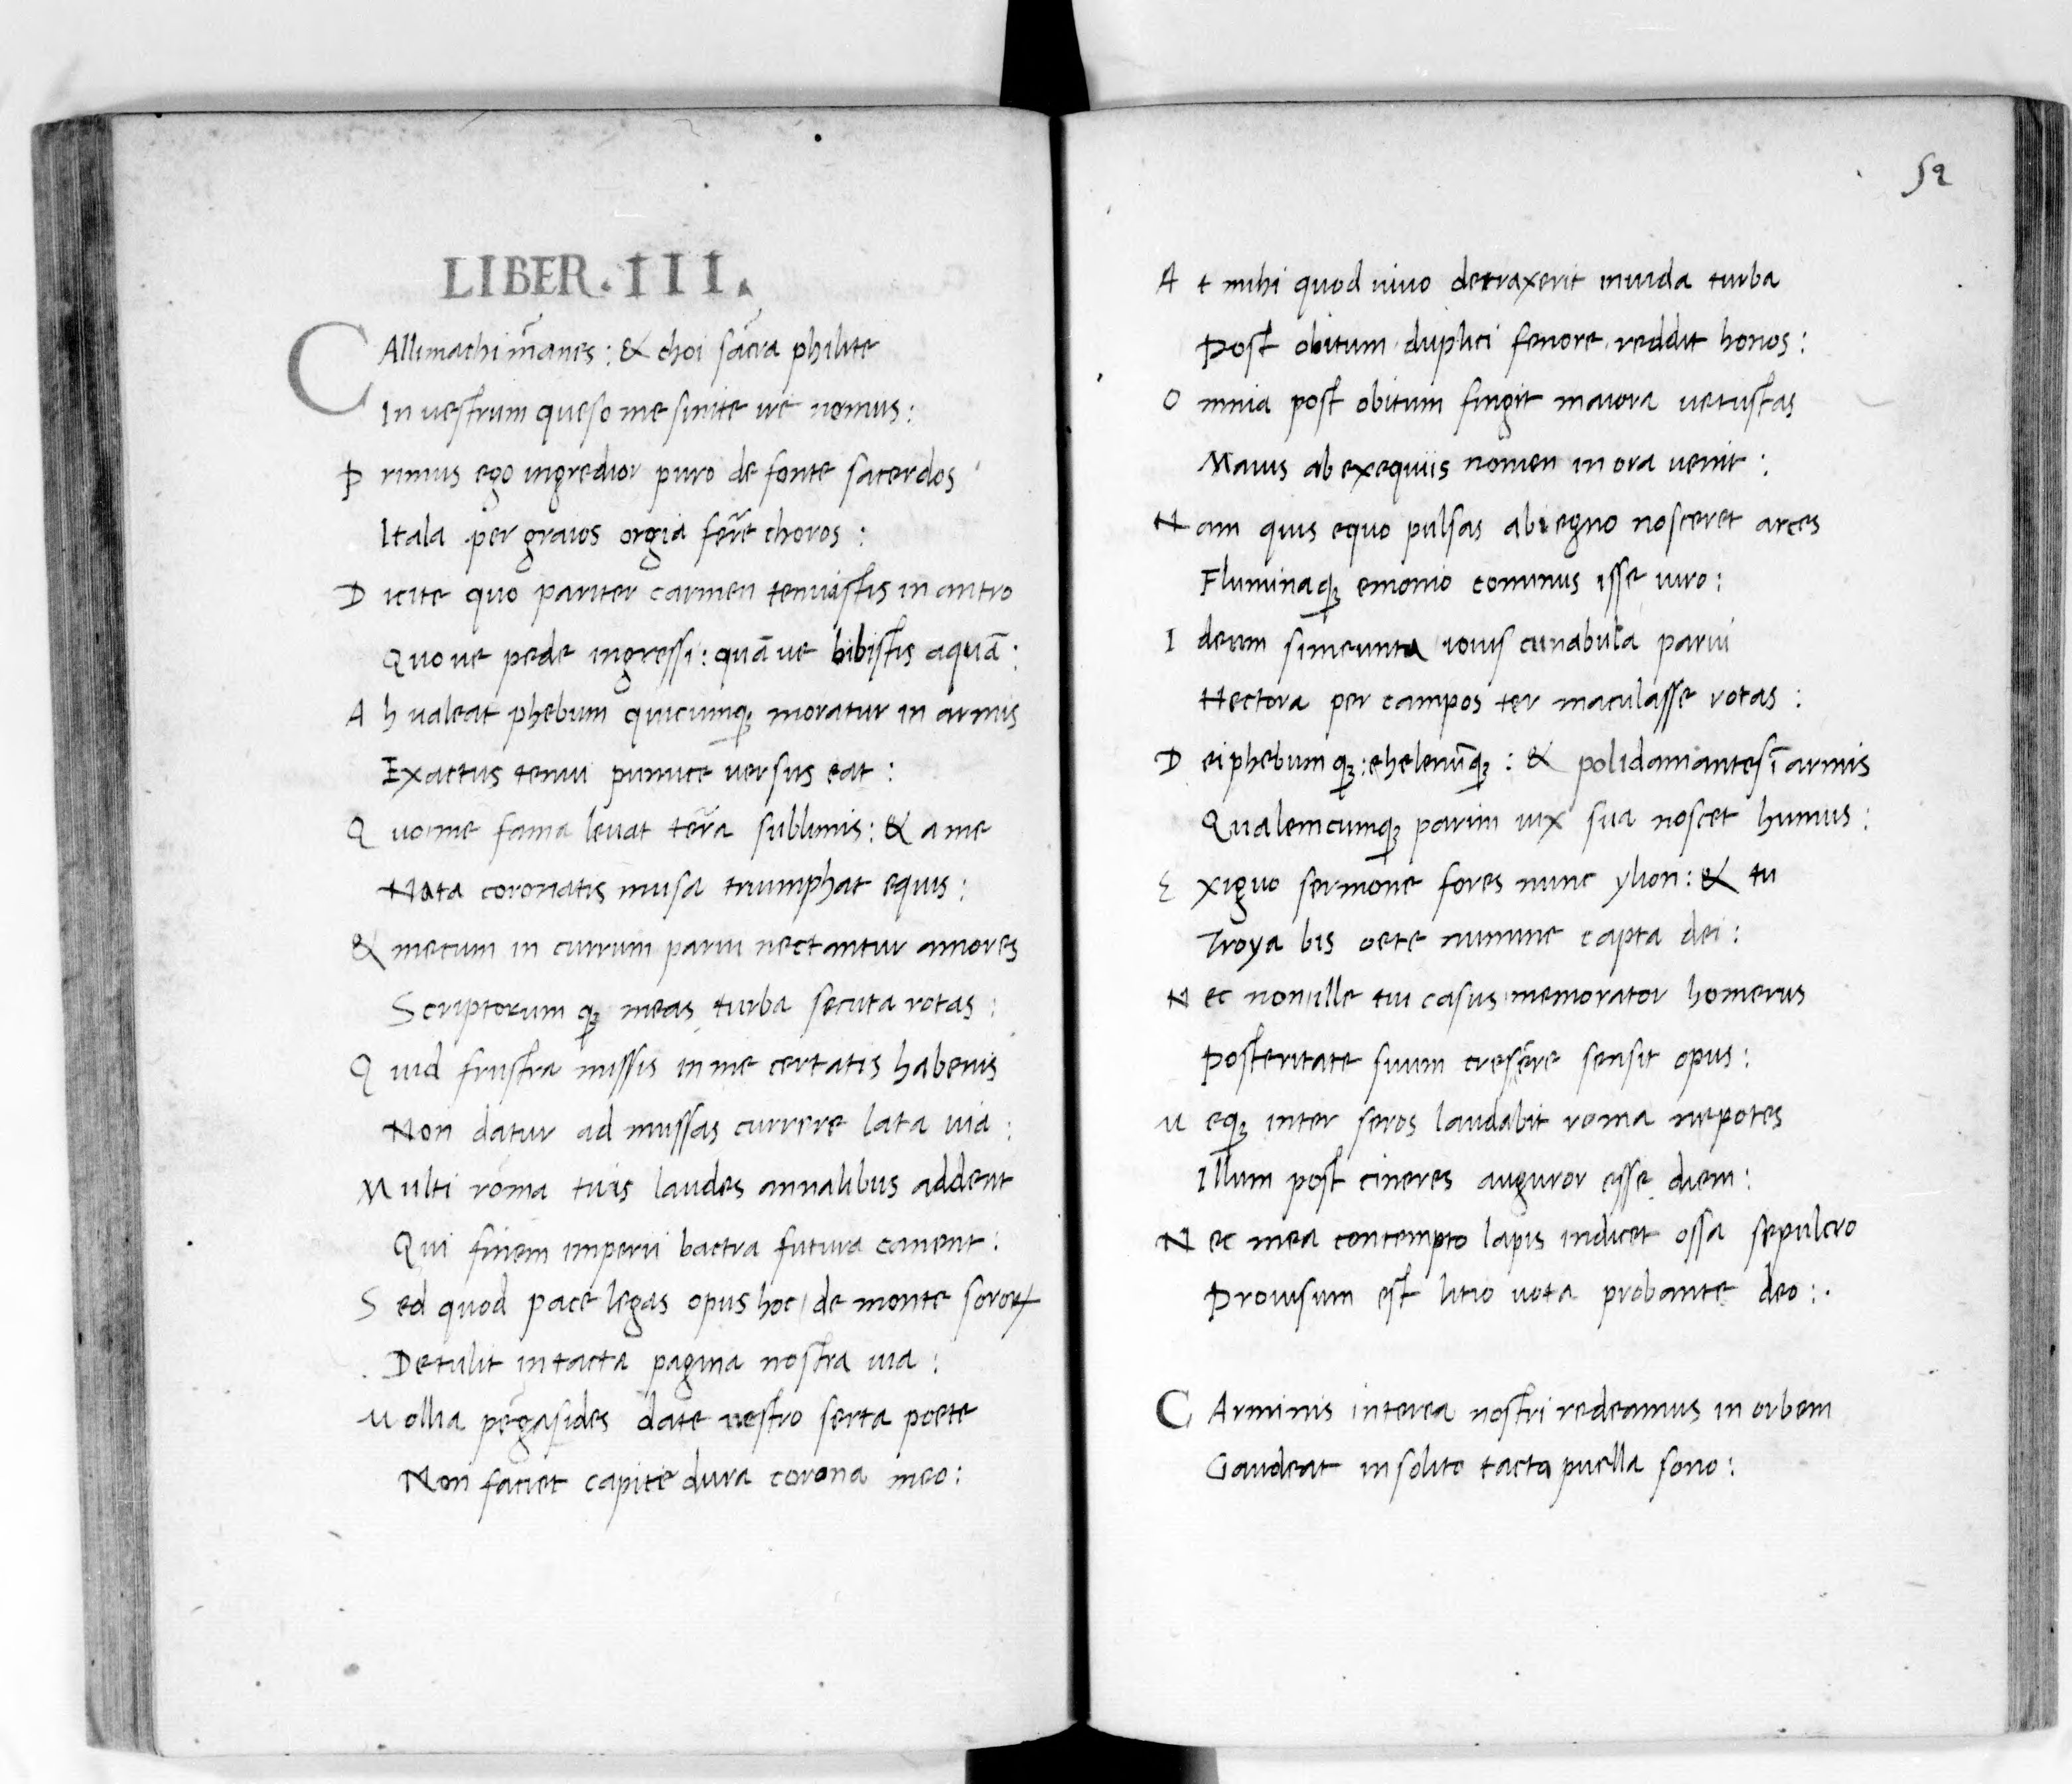 LIBER . III .
CAllimachi m̃anes : & choi sac̃ra philite
In uestrum queso me sinite ire nemus :
Primus ego ingredior puro de fonte sacerdos
Itala per graios orgia ferr̃e choros :
Dicite quo pariter carmen tenuistis in antro
Quo ue pede ingressi : quā ue bibistis aquā :
Ah ualeat phebum quicumqꝫ moratur in armis
Exactus tenui pumice uersus eat :
Quo me fama leuat terr̃a sublimis : & a me
Nata coronatis musa triumphat equis :
& mecum in currum parui nectantur amores
Scriptorum qꝫ meas turba secuta rotas :
Quid frustra missis in me certatis habenis
Non datur ad mussas currere lata uia :
Multi roma tuis laudes annalibus addent
Qui finem imperii bactra futura canent :
Sed quod pace legas opus hoc / de monte sororꝝ
Detulit intacta pagina nostra uia :
Mollia pegasides date uestro serta poete
Non faciet capite dura corona meo :
52
At mihi quod uiuo detraxerit inuida turba
Post obitum duplici fenore reddit honos :
Omnia post obitum fingit maiora uetustas
Maius ab exequiis nomen in ora uenit :
Nam quis equo pulsas abiegno nosceret arces
Fluminaqꝫ emonio cominus isse uiro :
Ideum simeunta iouis cunabula parui
Hectora per campos ter maculasse rotas :
Deiphebum qꝫ : ehelenūqꝫ : & polidamantes ī armis
Qualemcumqꝫ parim uix sua noscet humus :
Exiguo sermone fores nunc ylion : & tu
Troya bis oete numine capta dei :
Nec non ille tui casus memorator homerus
Posteritate suum crescere sensit opus :
Meqꝫ inter seros laudabit roma nepotes
Illum post cineres auguror esse diem :
Nec mea contempto lapis indicet ossa sepulcro
Prouisum est litio uota probante deo : .
CArminis interea nostri redeamus in orbem
Gaudeat in solito tacta puella sono :